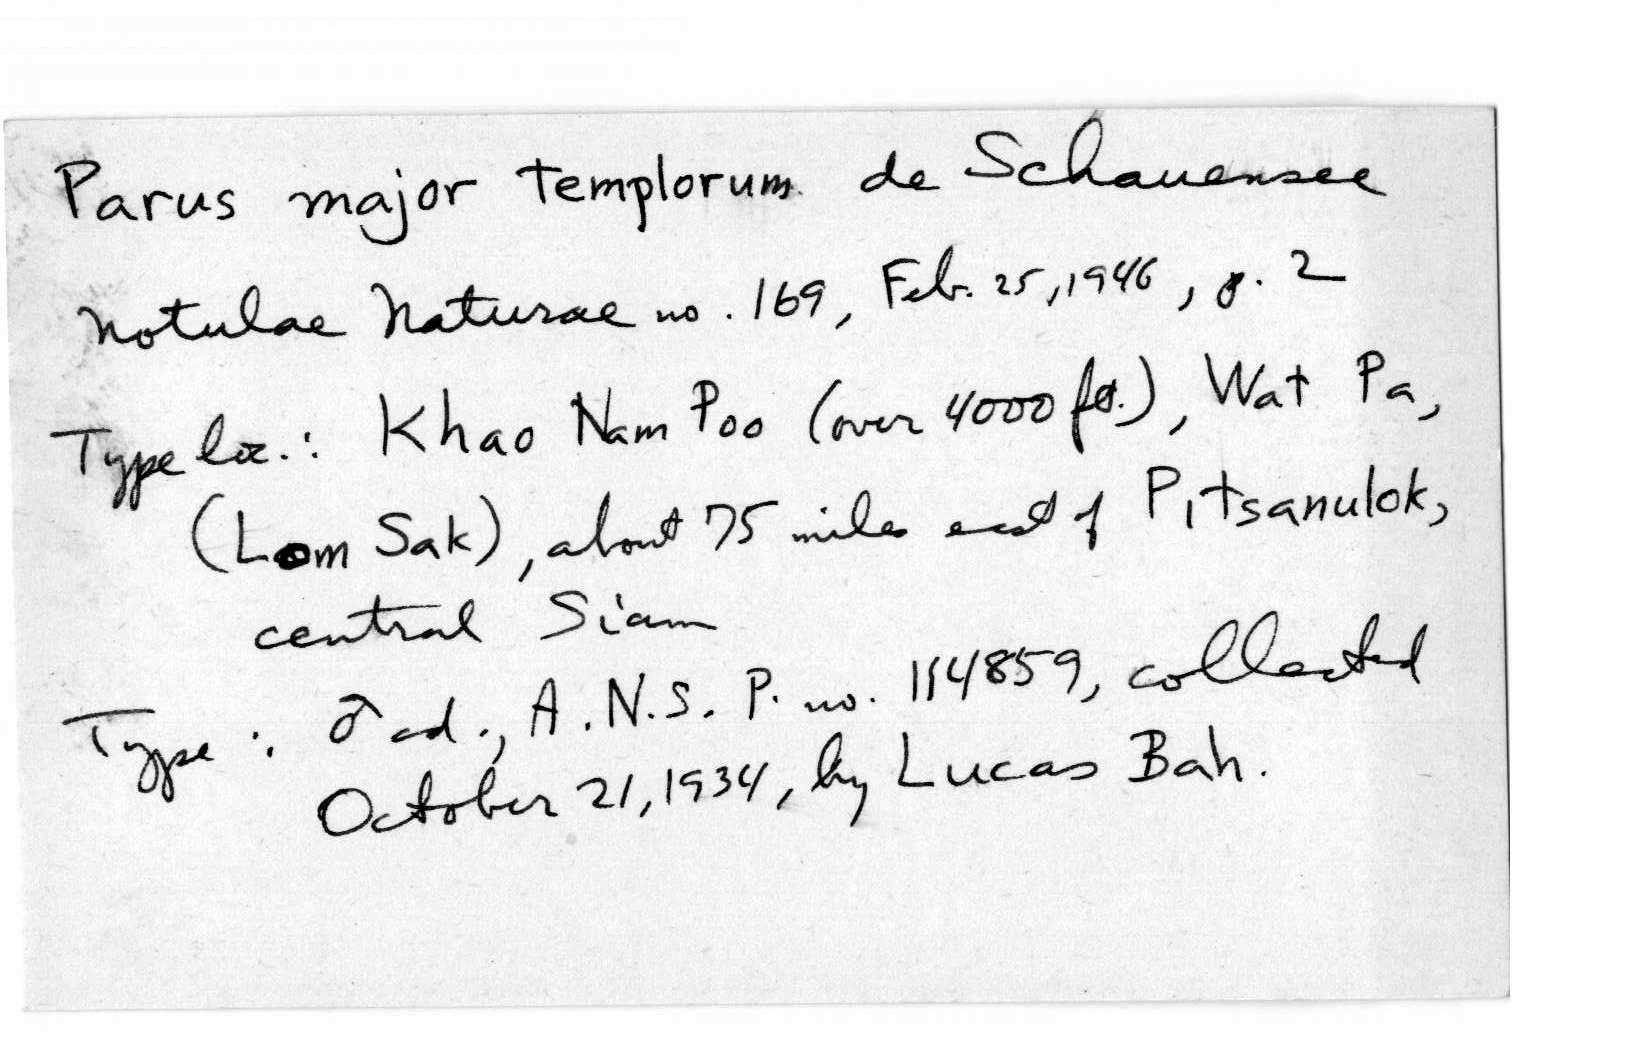 Parus major templorum de Schauensee
Notulae Naturae no. 169, Feb. 25, 1946, p. 2
Type loc.: Khao Nam Poo (over 4000 ft.), Wat Pa,
(Lom Sak), about 75 miles east of Pitsanulok,
central Siam
Type: ♂ ad., A.N.S.P. no. 114859, collected
October 21, 1934, by Lucas Bah.